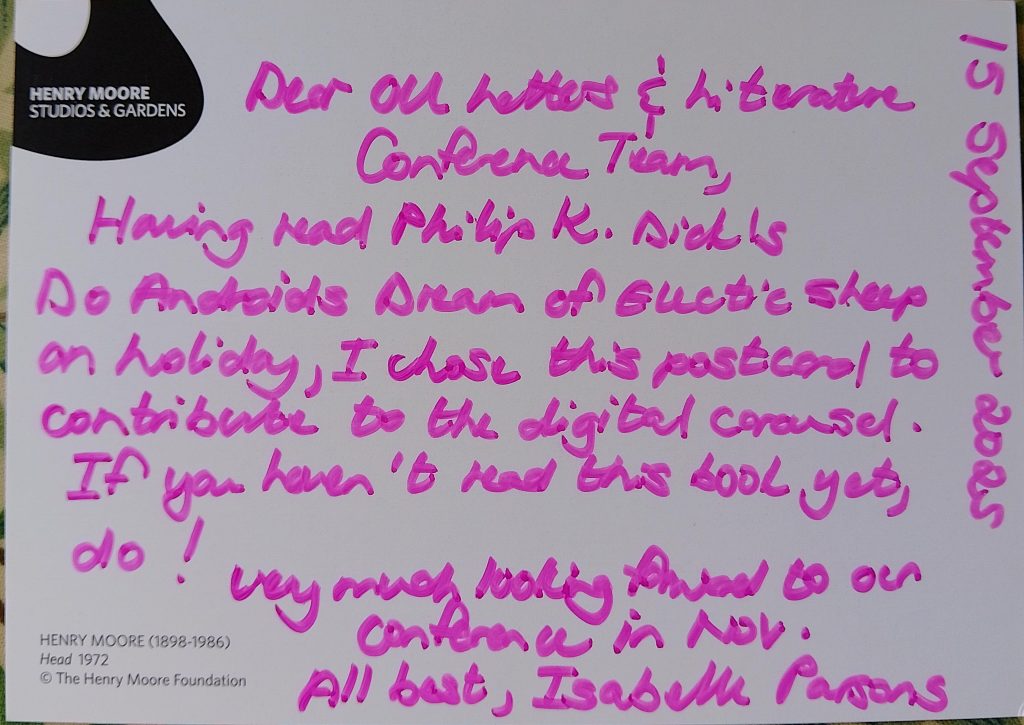 HENRY MOORE
STUDIOS & GARDENS
15 September 2025
Dear OU Letters & Literature
Conference Team,
Having read Philip K. Dick's
Do Androids Dream of Electric Sheep
on holiday, I chose this postcard to
contribute to the digital carousel.
If you haven't read this book yet,
do!
very much looking forward to our
conference in Nov.
All best, Isabelle Parsons
HENRY MOORE (1898-1986)
Head 1972
© The Henry Moore Foundation